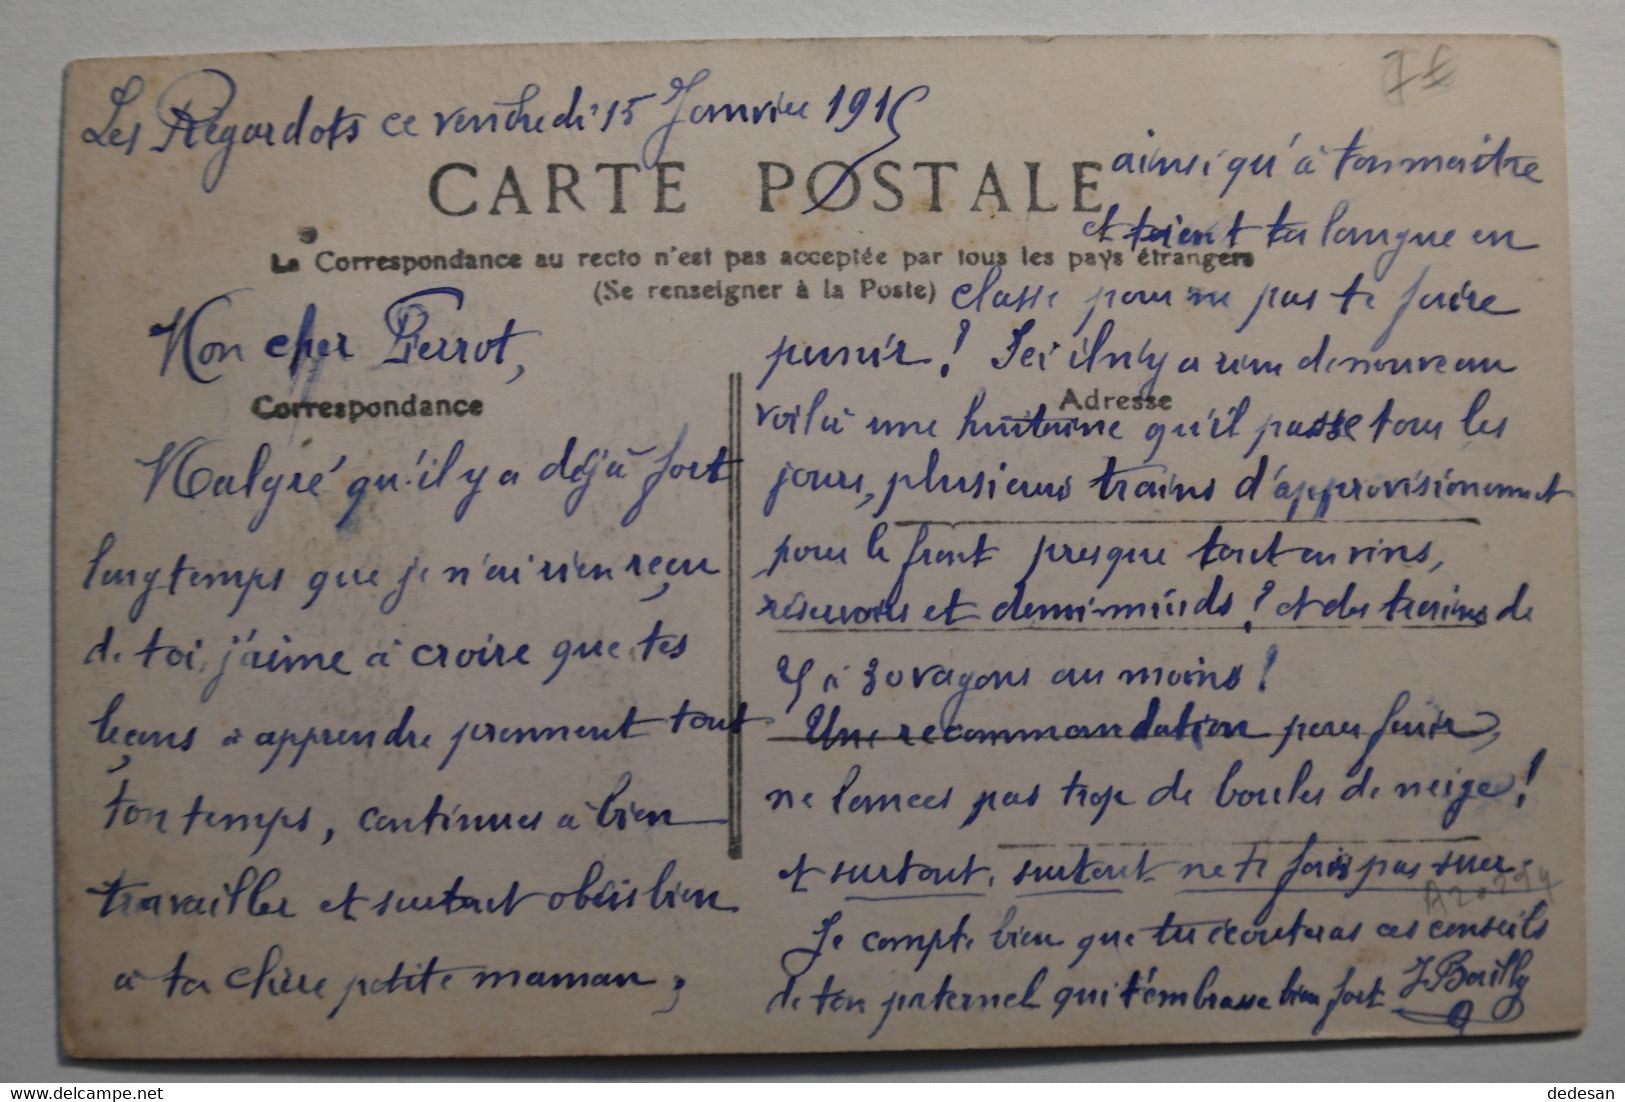 Les Régardots ce vendredi 15 Janvier 1915
CARTE POSTALE
La Correspondance au recto n'est pas acceptée par tous les pays étrangers
(Se renseigner à la Poste)
Mon cher Pierrot,
Correspondance
Malgré qu'il y a déjà fort
longtemps que je n'ai rien reçu
de toi, j'aime à croire que tes
leçons à apprendre prennent tout
ton temps, continues à bien
travailler et surtout obéis bien
à ta chère petite maman,
ainsi qu'à ton maître
et tient ta langue en
classe pour ne pas te faire
punir! Ici il n'y a rien de nouveau
Adresse
voilà une huitaine qu'il passe tous les
jours, plusieurs trains d'approvisionnement
pour le front presque tout en vins,
réservoirs et demi-muids! et des trains de
à 30 vagons au moins!
Une recommandation pour finir,
ne lances pas trop de boules de neige!
et surtout, surtout ne te fais pas suer.
Je compte bien que tu écouteras ces conseils
de ton paternel qui t'embrasse bien fort J Bailly
Hippostcard.com
dedesan